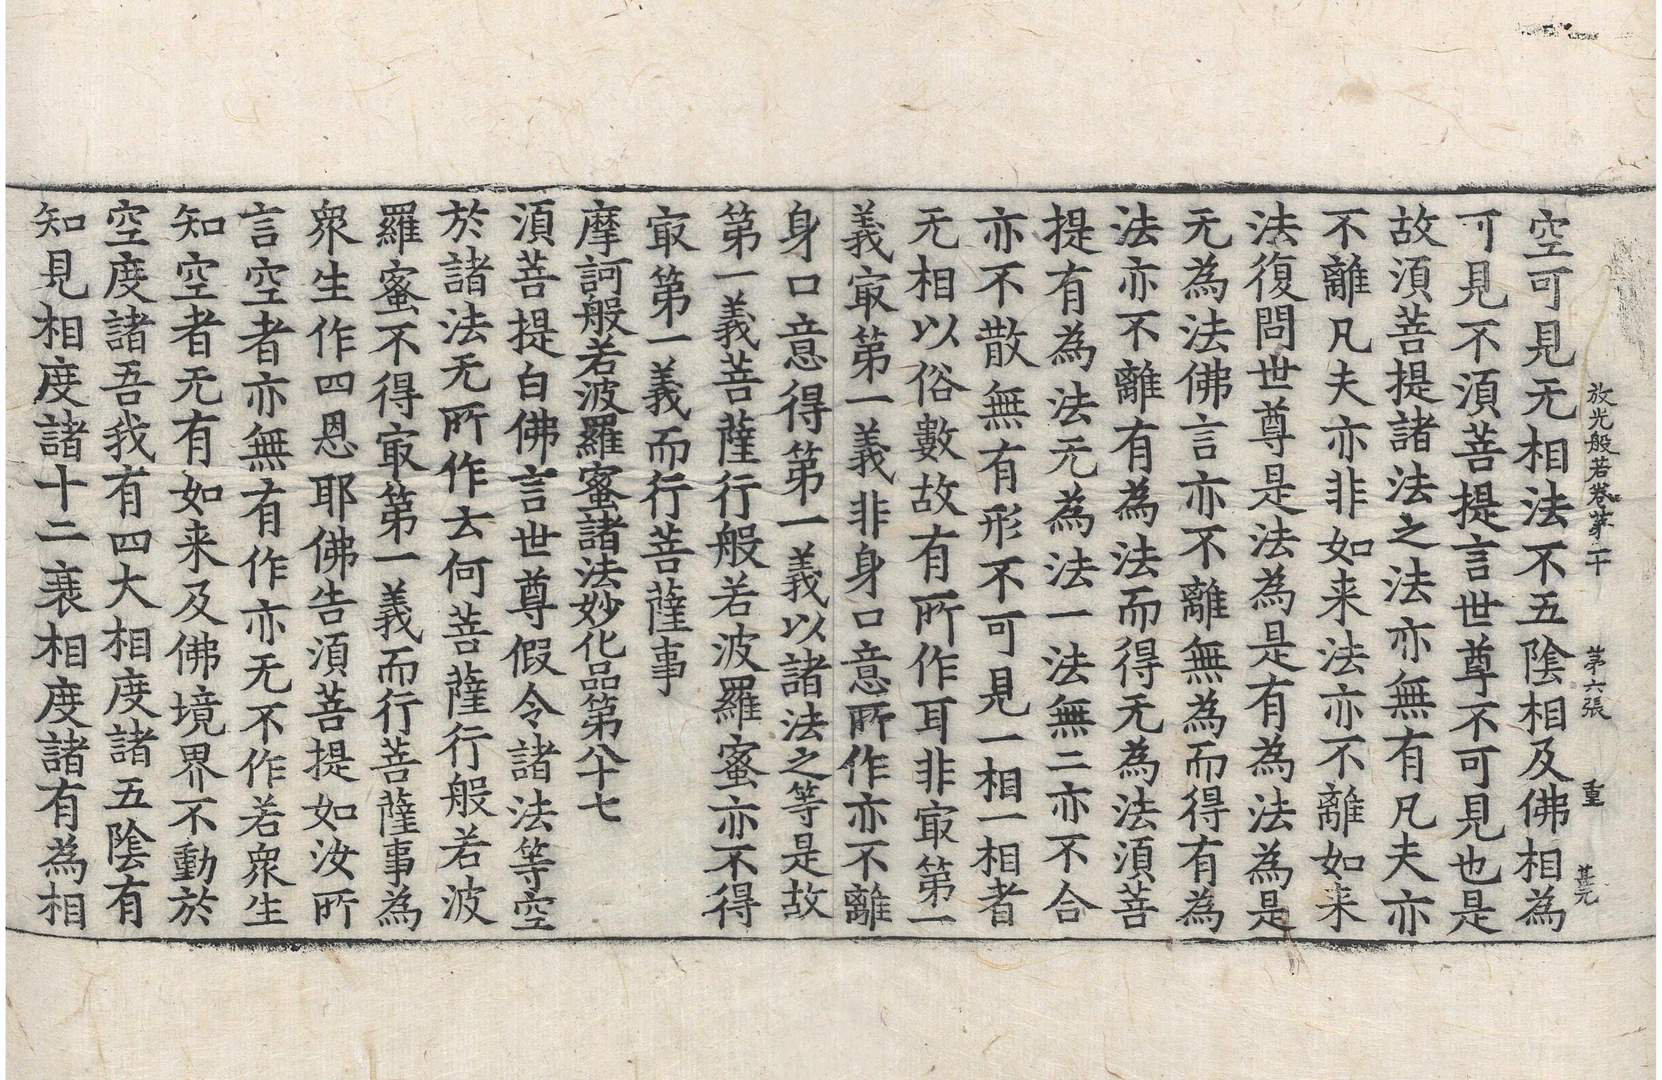 放光般若卷苐二十 苐六張 重 甚元
空可見无相法不五陰相及佛相為
可見不須菩提言世尊不可見也是
故須菩提諸法之法亦無有凡夫亦
不離凡夫亦非如来法亦不離如来
法復問世尊是法為是有為法為是
无為法佛言亦不離無為而得有為
法亦不離有為法而得无為法須菩
提有為法无為法一法無二亦不合
亦不散無有形不可見一相一相者
无相以俗數故有所作耳非㝡第一
義㝡第一義非身口意所作亦不離
身口意得第一義以諸法之等是故
第一義菩薩行般若波羅蜜亦不得
㝡第一義而行菩薩事
摩訶般若波羅蜜諸法妙化品第八十七
須菩提白佛言世尊假令諸法等空
於諸法无所作云何菩薩行般若波
羅蜜不得㝡第一義而行菩薩事為
衆生作四恩耶佛告須菩提如汝所
言空者亦無有作亦无不作若衆生
知空者无有如来及佛境界不動於
空度諸吾我有四大相度諸五陰有
知見相度諸十二衰相度諸有為相